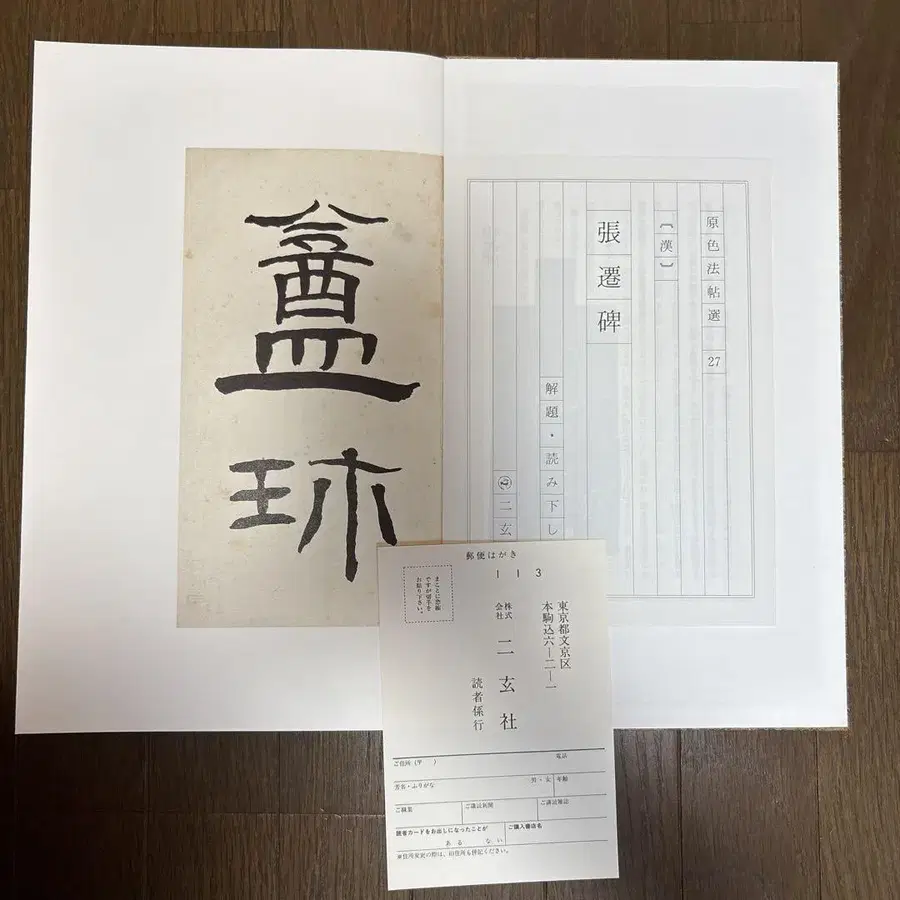 原色法帖選 27
〔漢〕
張遷碑
解題・読み下し
㊁二玄
盦
郵便はがき
113
東京都文京区
本駒込六−二−一
株式会社 二玄社
読者係行
まことに恐縮
ですが切手を
お貼り下さい。
ご住所(〒 ) 電話
芳名・ふりがな 男・女 年齢
ご職業 ご購読新聞 ご購読雑誌
読者カードをお出しになったことが ご購入書店名
ある ない
※住所変更の際は、旧住所も併記ください。